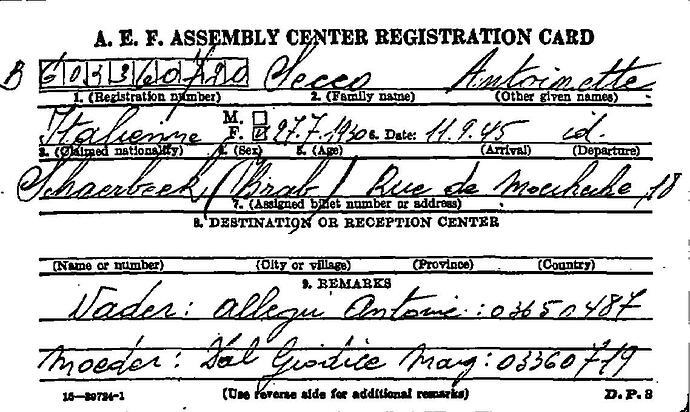 A. E. F. ASSEMBLY CENTER REGISTRATION CARD
B 603360720 Secco Antoinette
1. (Registration number) 2. (Family name) (Other given names)
Italienne M. F. 27.7.1930 6. Date: 11.9.45 id.
3. (Claimed nationality) 4. (Sex) 5. (Age) (Arrival) (Departure)
Schaerbeek (Brab) Rue de 18
7. (Assigned billet number or address)
8. DESTINATION OR RECEPTION CENTER
(Name or number) (City or village) (Province) (Country)
9. REMARKS
Vader: Allegri Antonie: 03650487
Moeder: Dal Giodice Marg: 03360719
16-39724-1 (Use reverse side for additional remarks) D.P. 2